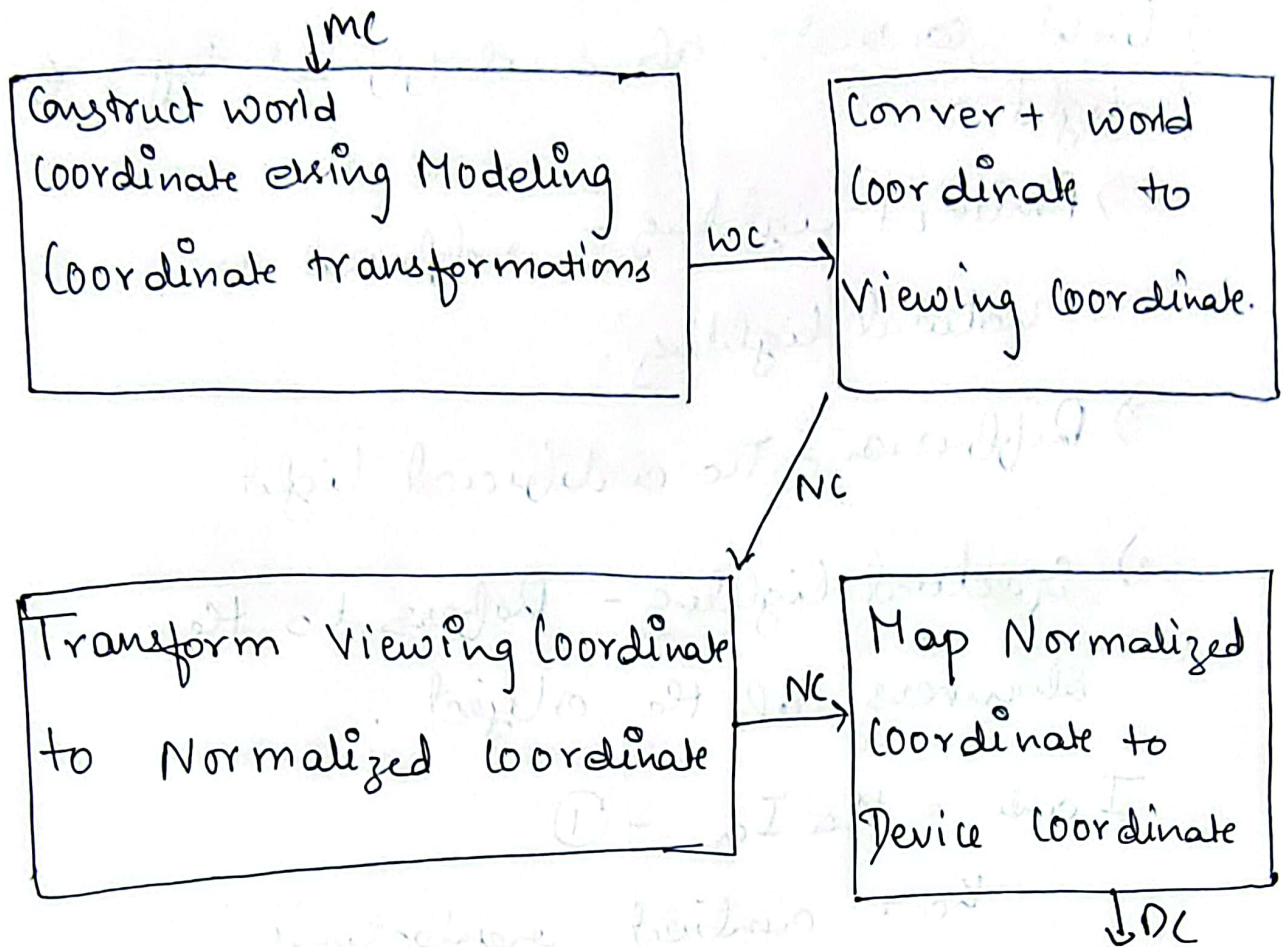 MC
Construct world
Coordinate using Modeling
Coordinate transformations
WC
Convert world
Coordinate to
Viewing Coordinate.
NC
Transform Viewing Coordinate
to Normalized Coordinate
NC
Map Normalized
Coordinate to
Device Coordinate
DC